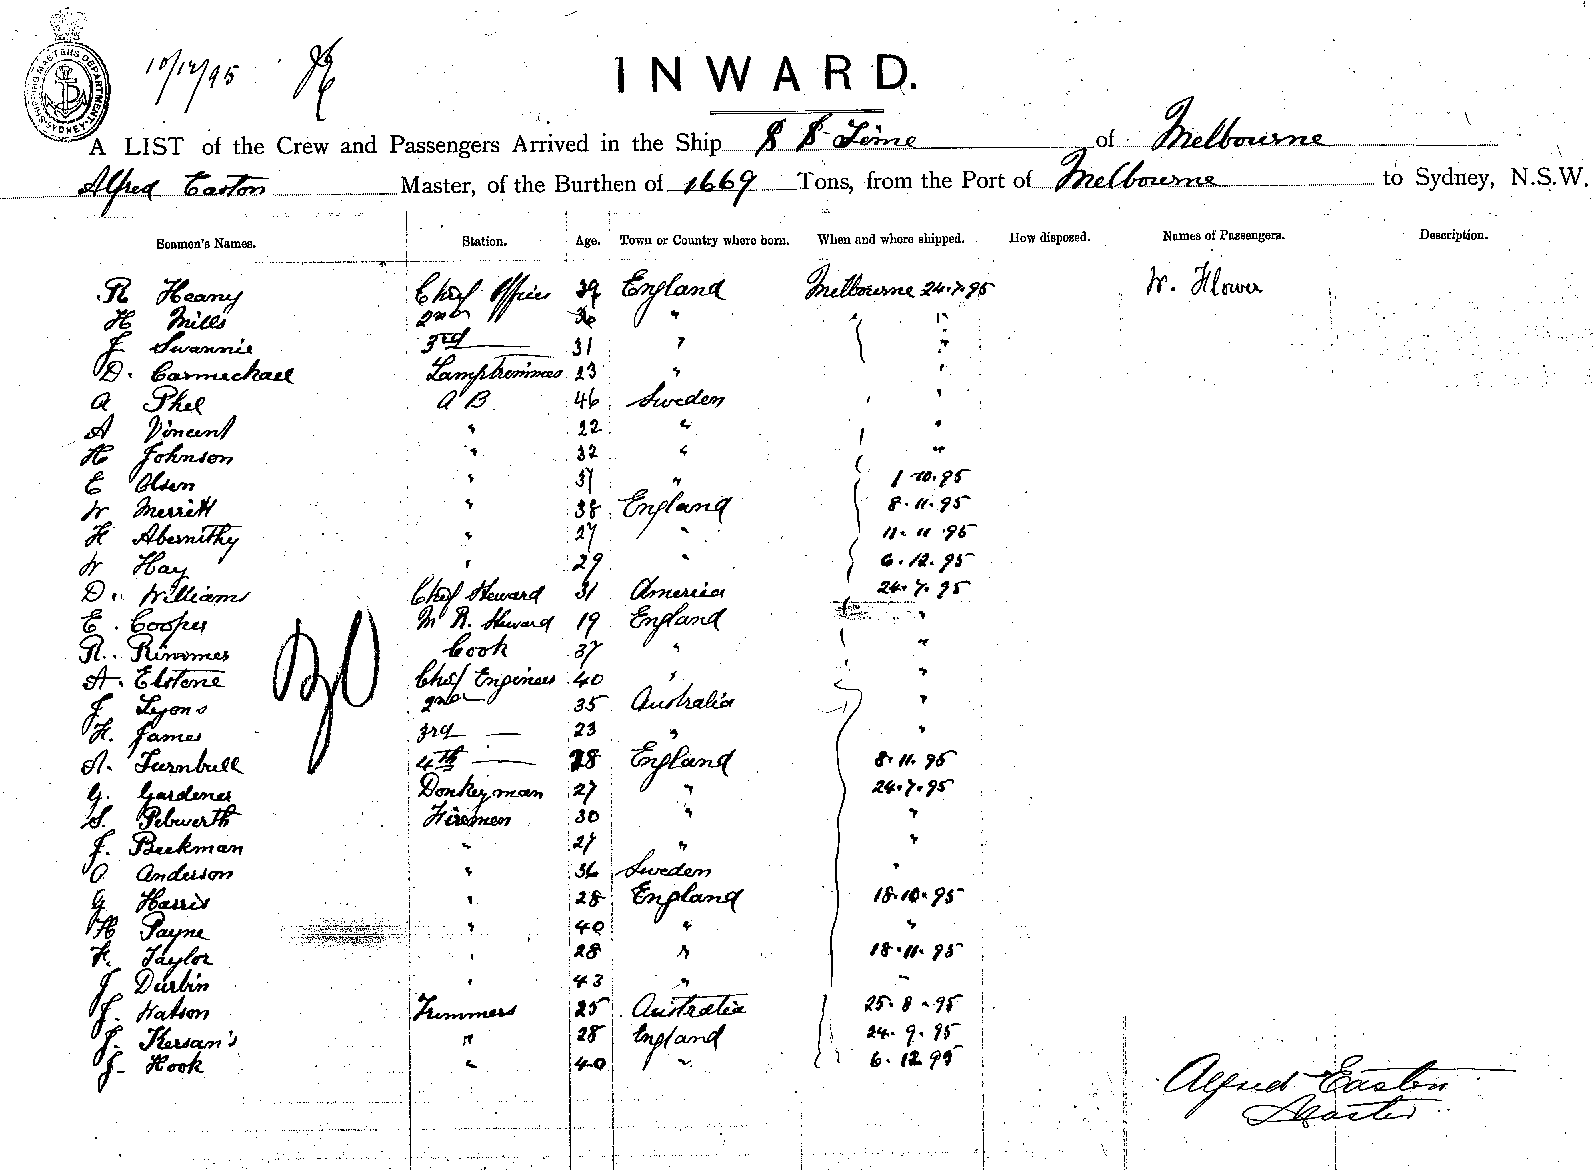 SHIPPING MASTERS DEPARTMENT SYDNEY
10/12/95
INWARD.
A LIST of the Crew and Passengers Arrived in the Ship S S Time of Melbourne
Alfred Easton Master, of the Burthen of 1669 Tons, from the Port of Melbourne to Sydney, N.S.W.
Seamen's Names. Station. Age. Town or Country where born. When and where shipped. How disposed. Names of Passengers. Description.
R Heany Chief Officer 39 England Melbourne 24.7.95 W. Flower
H Mills 2nd 36 " " "
J Swannie 3rd 31 " "
D. Carmichael Lamptrimmer 23 " "
A Phel A B 46 Sweden "
A Vincent " 22 " "
H Johnson " 32 " "
E Olsen " 37 " 1.10.95
W Merritt " 38 England 8.11.95
H Abernithy " 27 " 11.11.95
W Hay " 29 " 6.12.95
D. Williams Chief Steward 31 America 24.7.95
E. Cooper M R. Steward 19 England "
R. Rimmer Cook 37 " "
A. Elstone Chief Engineer 40 " "
J Lyons 2nd 35 Australia "
H. James 3rd 23 " "
A. Turnbull 4th 28 England 8.11.95
G. Gardener Donkeyman 27 " 24.7.95
S. Pebworth Firemen 30 " "
J. Beekman " 27 " "
O Anderson " 36 Sweden "
G Harris " 28 England 18.10.95
H Payne " 40 " "
H. Taylor " 28 " 18.11.95
J Durbin " 43 " "
J. Watson Trimmers 25 Australia 25.8.95
J. Kersan's " 28 England 24.9.95
J. Hook " 40 " 6.12.95
Alfred Easton
Master